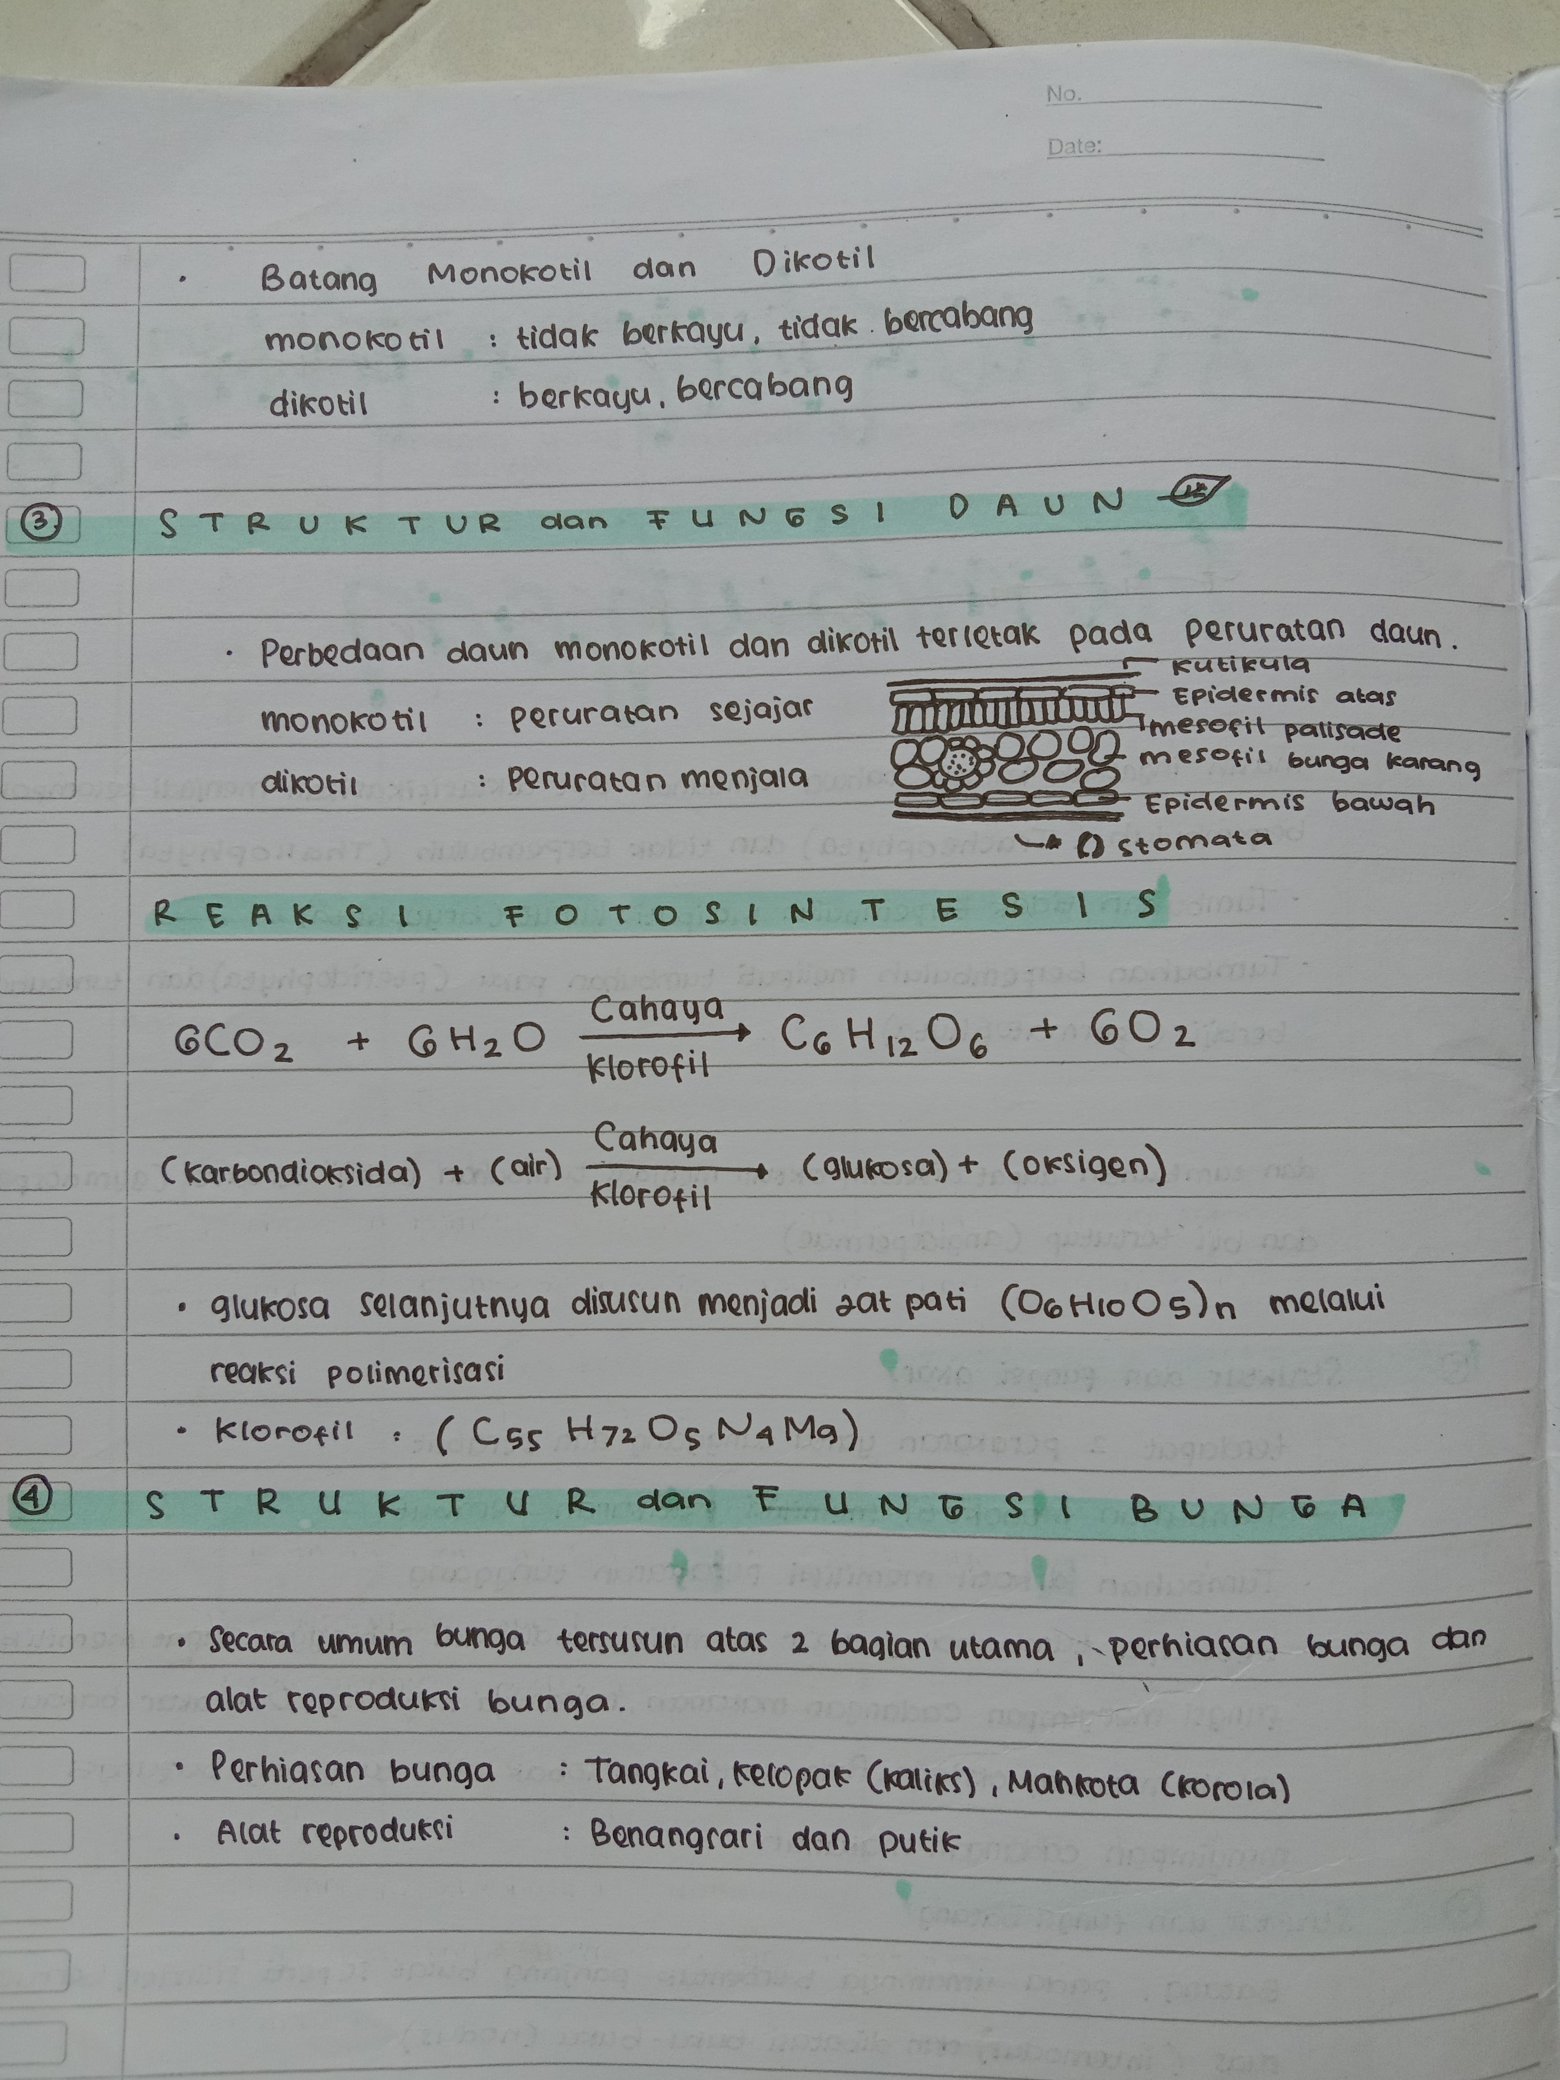 No.
Date:
• Batang Monokotil dan Dikotil
monokotil : tidak berkayu, tidak bercabang
dikotil : berkayu, bercabang
3 STRUKTUR dan FUNGSI DAUN
• Perbedaan daun monokotil dan dikotil terletak pada peruratan daun.
Kutikula
Epidermis atas
monokotil : peruratan sejajar
mesofil palisade
mesofil bunga karang
dikotil : peruratan menjala
Epidermis bawah
stomata
REAKSI FOTOSINTESIS
Cahaya
6CO2 + 6H2O → C6H12O6 + 6O2
Klorofil
Cahaya
(karbondioksida) + (air) → (glukosa) + (oksigen)
Klorofil
• glukosa selanjutnya disusun menjadi zat pati (O6H10O5)n melalui
reaksi polimerisasi
• Klorofil : (C55H72O5N4Mg)
4 STRUKTUR dan FUNGSI BUNGA
• Secara umum bunga tersusun atas 2 bagian utama, perhiasan bunga dan
alat reproduksi bunga.
• Perhiasan bunga : Tangkai, kelopak (kaliks), Mahkota (korola)
• Alat reproduksi : Benangsari dan putik